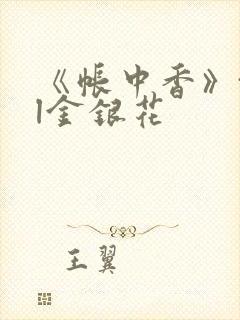 《帐中香》
|金银花
王翼